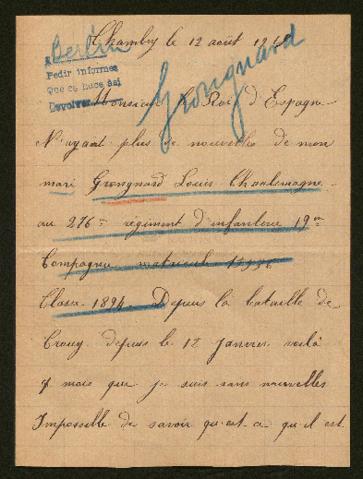 Chambry le 12 août 19
Berlin
Grongnard
Pedir informes
Que se hace así
Devolver
Monsieur le Roi d'Espagne
N'ayant plus de nouvelle de mon
mari Grongnard Louis Charlemagne
au 276me regiment d'infanterie 19me
Compagnie matricule
Classe 1894. Depuis la bataille de
Crouy depuis le 12 Janvier voilà
7 mois que je suis sans nouvelles
Impossible de savoir qu'est ce qu'il est